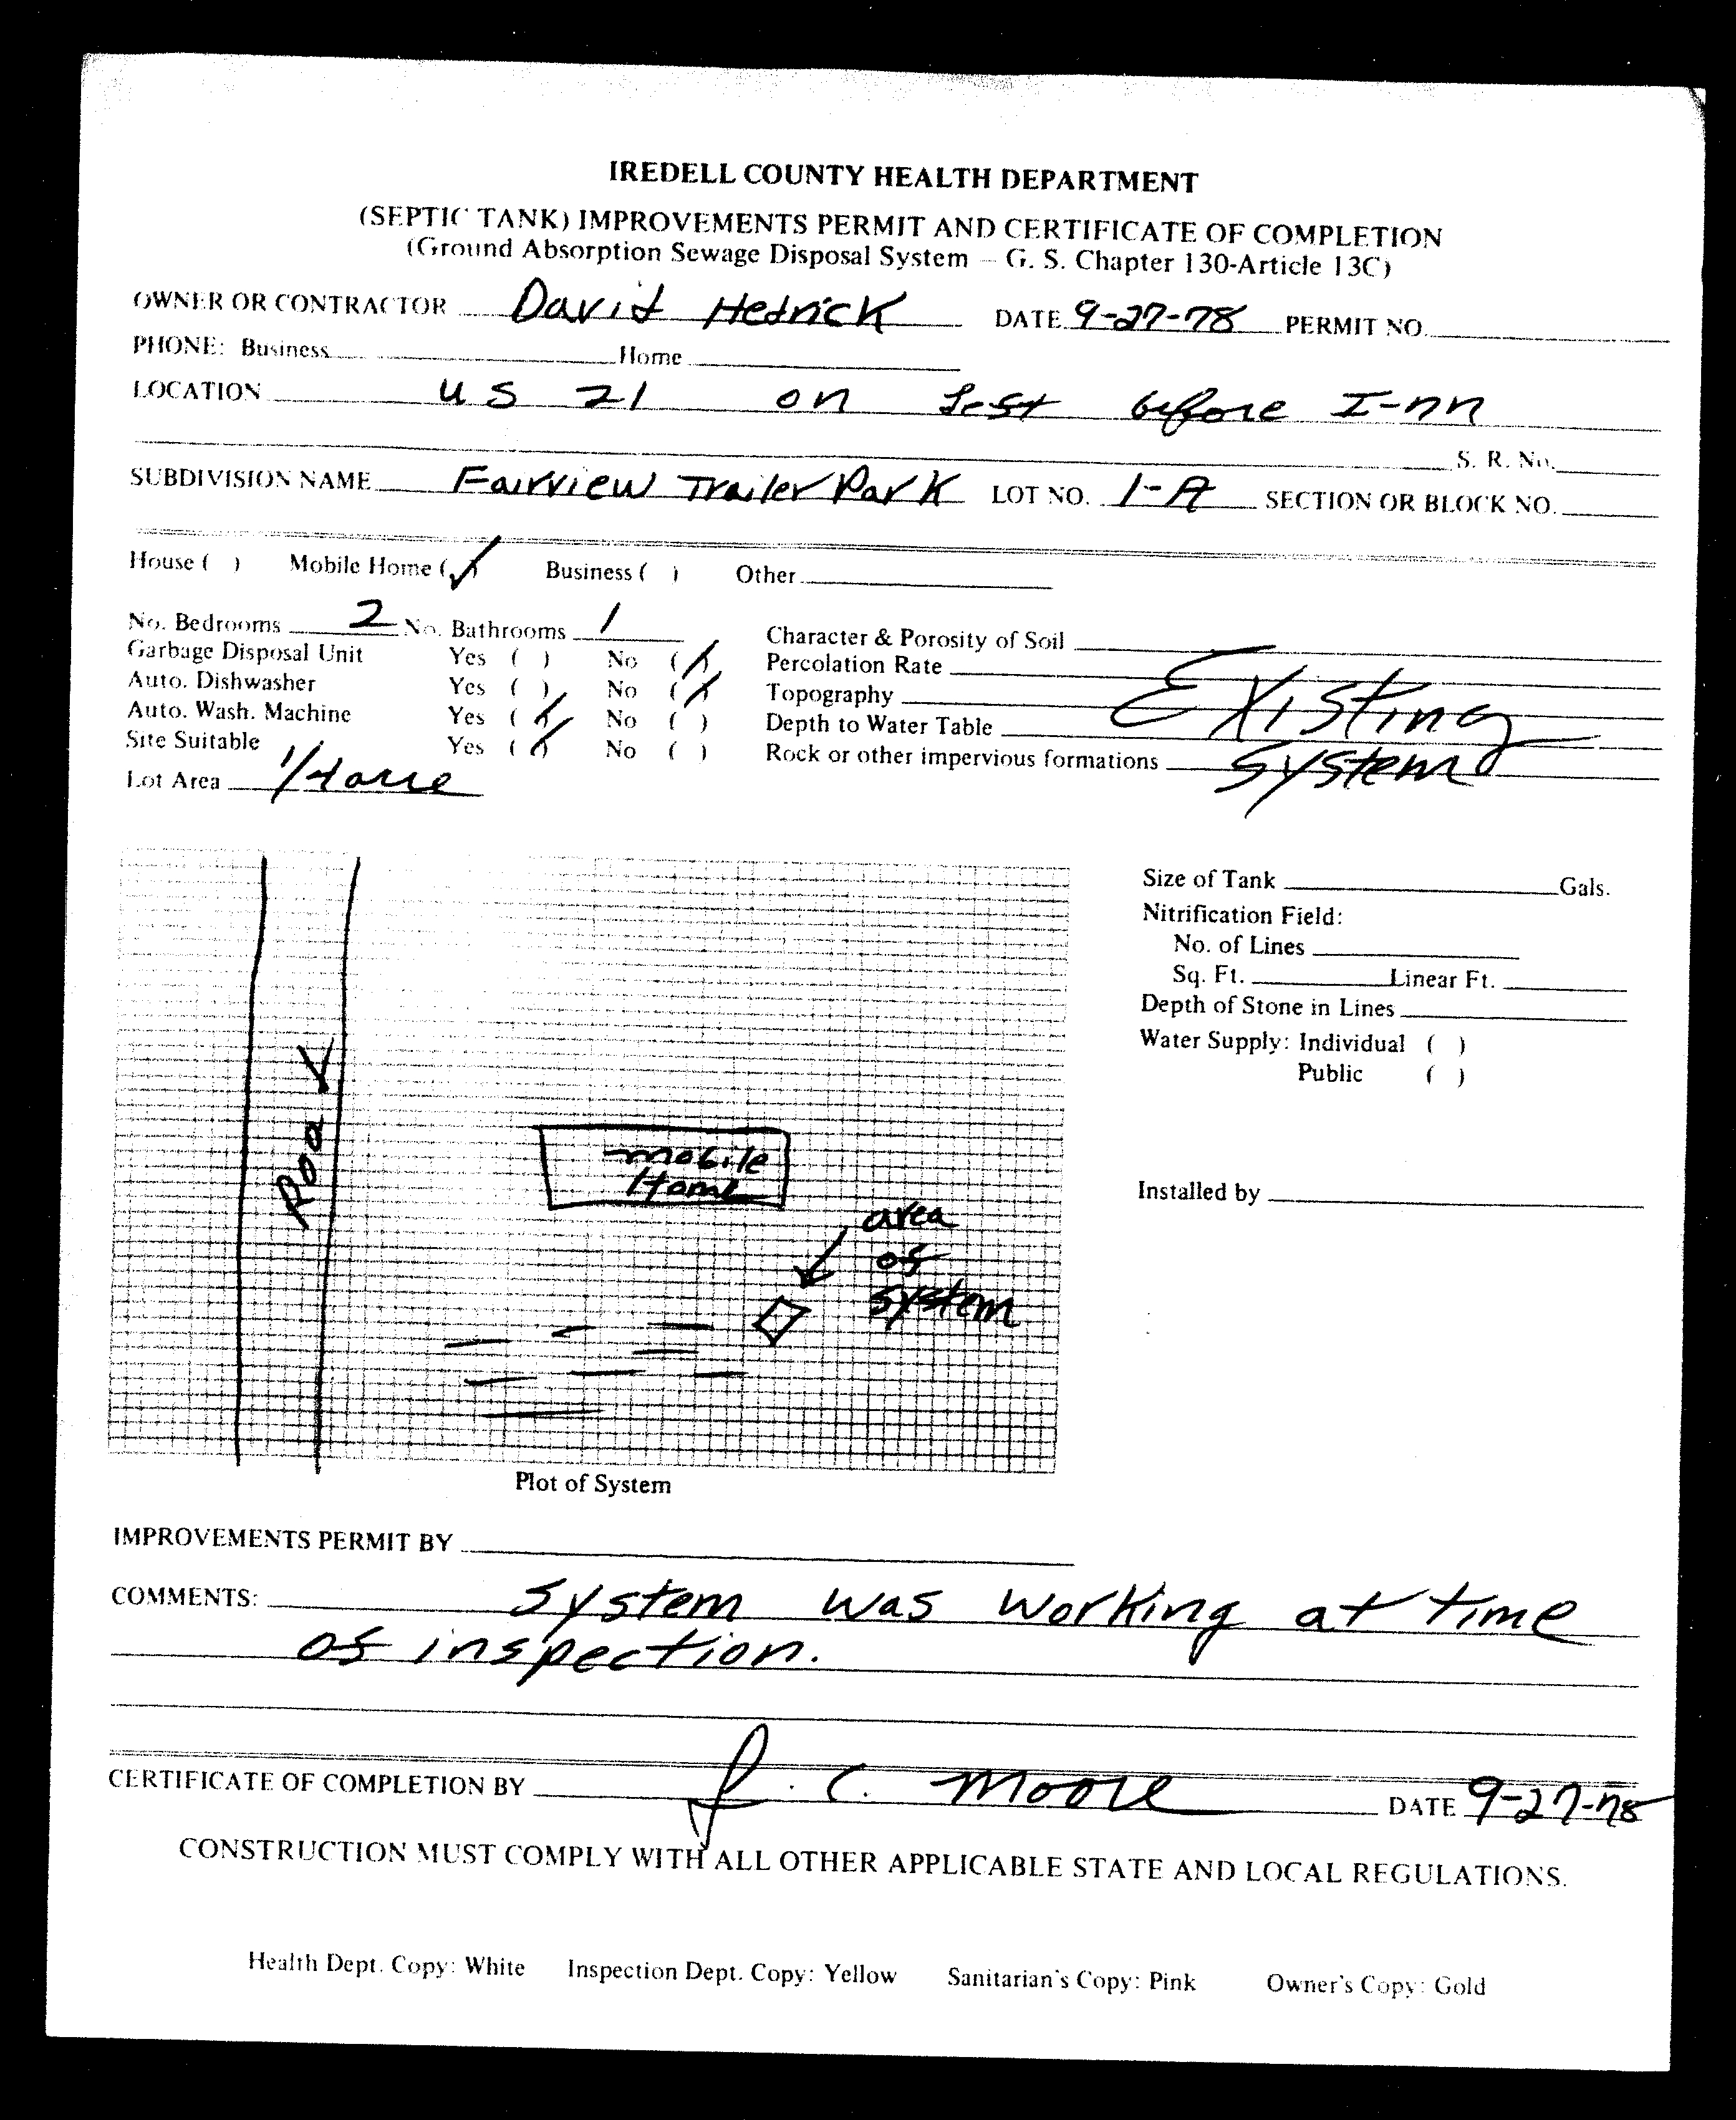 IREDELL COUNTY HEALTH DEPARTMENT
(SEPTIC TANK) IMPROVEMENTS PERMIT AND CERTIFICATE OF COMPLETION
(Ground Absorption Sewage Disposal System – G. S. Chapter 130-Article 13C)
OWNER OR CONTRACTOR David Hedrick DATE 9-27-78 PERMIT NO.
PHONE: Business Home
LOCATION US 21 on left before I-77
S. R. No.
SUBDIVISION NAME Fairview Trailer Park LOT NO. 1-A SECTION OR BLOCK NO.
House ( ) Mobile Home (✓) Business ( ) Other
No. Bedrooms 2 No. Bathrooms 1
Garbage Disposal Unit Yes ( ) No (✓)
Auto. Dishwasher Yes ( ) No (✓)
Auto. Wash. Machine Yes (✓) No ( )
Site Suitable Yes (✓) No ( )
Lot Area 1/4 acre
Character & Porosity of Soil
Percolation Rate
Topography
Depth to Water Table
Rock or other impervious formations
Existing
System
Road
mobile
Home
area
of
system
Plot of System
Size of Tank Gals.
Nitrification Field:
No. of Lines
Sq. Ft. Linear Ft.
Depth of Stone in Lines
Water Supply: Individual ( )
Public ( )
Installed by
IMPROVEMENTS PERMIT BY
COMMENTS: System was working at time
of inspection.
CERTIFICATE OF COMPLETION BY J. C. Moore DATE 9-27-78
CONSTRUCTION MUST COMPLY WITH ALL OTHER APPLICABLE STATE AND LOCAL REGULATIONS.
Health Dept. Copy: White Inspection Dept. Copy: Yellow Sanitarian's Copy: Pink Owner's Copy: Gold